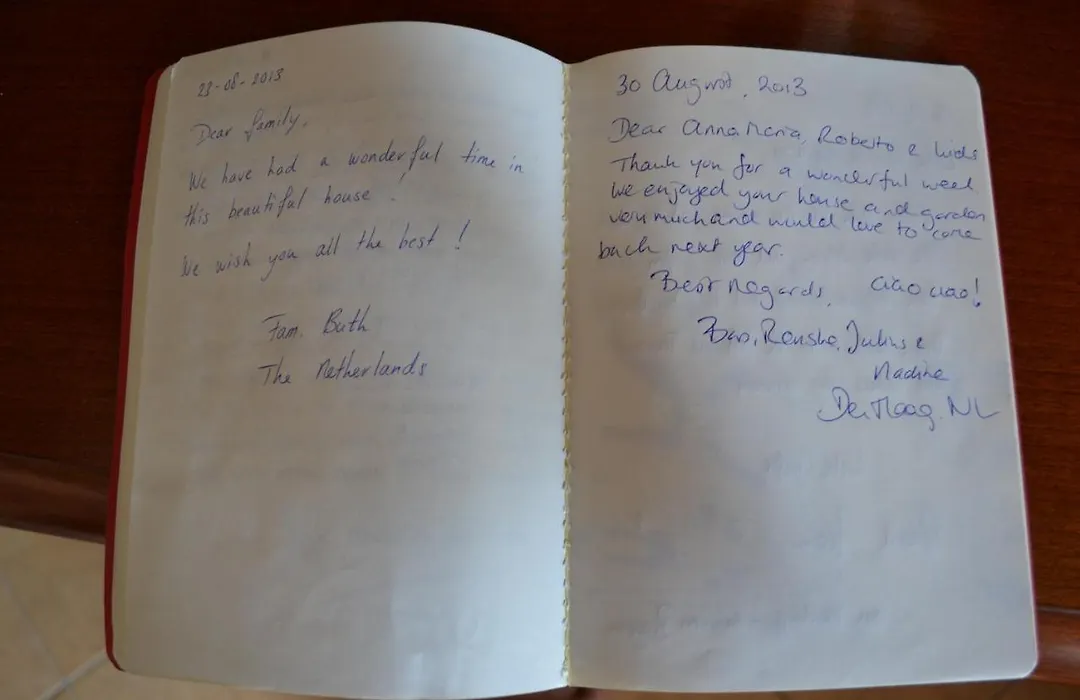 23-08-2013
Dear family,
We have had a wonderful time in
this beautiful house!
We wish you all the best!
Fam. Buth
The Netherlands
30 August, 2013
Dear Anna Maria, Roberto & kids
Thank you for a wonderful week
We enjoyed your house and garden
very much and would love to come
back next year.
Best Regards, ciao ciao!
Bas, Renske, Julius &
Nadine
Den Haag, NL